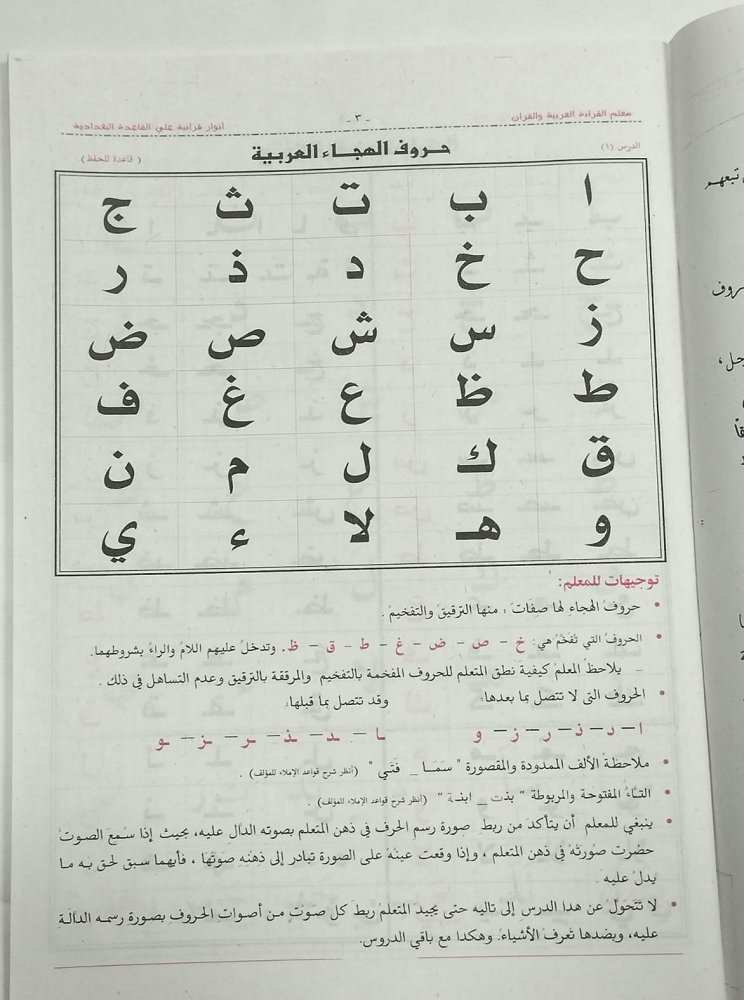 معلم القراءة العربية والقرآن
- ٣ -
أنوار قرآنية على القاعدة البغدادية
الدرس (١)
حروف الهجاء العربية
( قاعدة للحفظ )
ا ب ت ث ج
ح خ د ذ ر
ز س ش ص ض
ط ظ ع غ ف
ق ك ل م ن
و هـ لا ء ي
توجيهات للمعلم:
• حروف الهجاء لها صفات ، منها الترقيق والتفخيم .
• الحروف التي تفخم هي: خ – ص – ض – غ – ط – ق – ظ. وتدخل عليهم اللام والراء بشروطهما.
– يلاحظ المعلم كيفية نطق المتعلم للحروف المفخمة بالتفخيم والمرققة بالترقيق وعدم التساهل في ذلك .
• الحروف التى لا تتصل بما بعدها، وقد تتصل بما قبلها،
ا – د – ذ – ر – ز – و ـا – ـد – ـذ – ـر – ـز – ـو
• ملاحظة الألف الممدودة والمقصورة " سَمَـا _ فَتَي " (أنظر شرح قواعد الإملاء للمؤلف) .
• التاء المفتوحة والمربوطة " بنت _ ابنـة " (أنظر شرح قواعد الإملاء للمؤلف) .
• ينبغي للمعلم أن يتأكد من ربط صورة رسم الحرف في ذهن المتعلم بصوته الدال عليه، بحيث إذا سمع الصوت
حضرت صورته في ذهن المتعلم ، وإذا وقعت عينه على الصورة تبادر إلى ذهنه صوتها ، فأيهما سبق لحق به ما
يدل عليه .
• لا تتحول عن هذا الدرس إلى تاليه حتى يجيد المتعلم ربط كل صوت من أصوات الحروف بصورة رسمه الدالة
عليه، وبضدها تعرف الأشياء. وهكذا مع باقي الدروس.
تبعهم